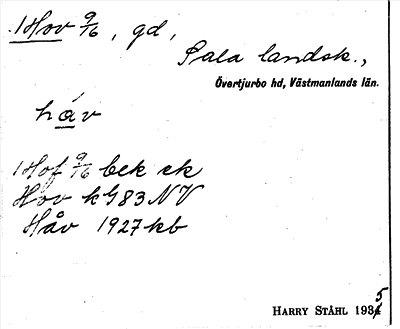 1 Hov 9/16, gd,
Sala landsk.,
Övertjurbo hd, Västmanlands län.
håv
1 Hof 9/16 bek ek
Hov kG83NV
Håv 1927 kb
HARRY STÅHL 1935